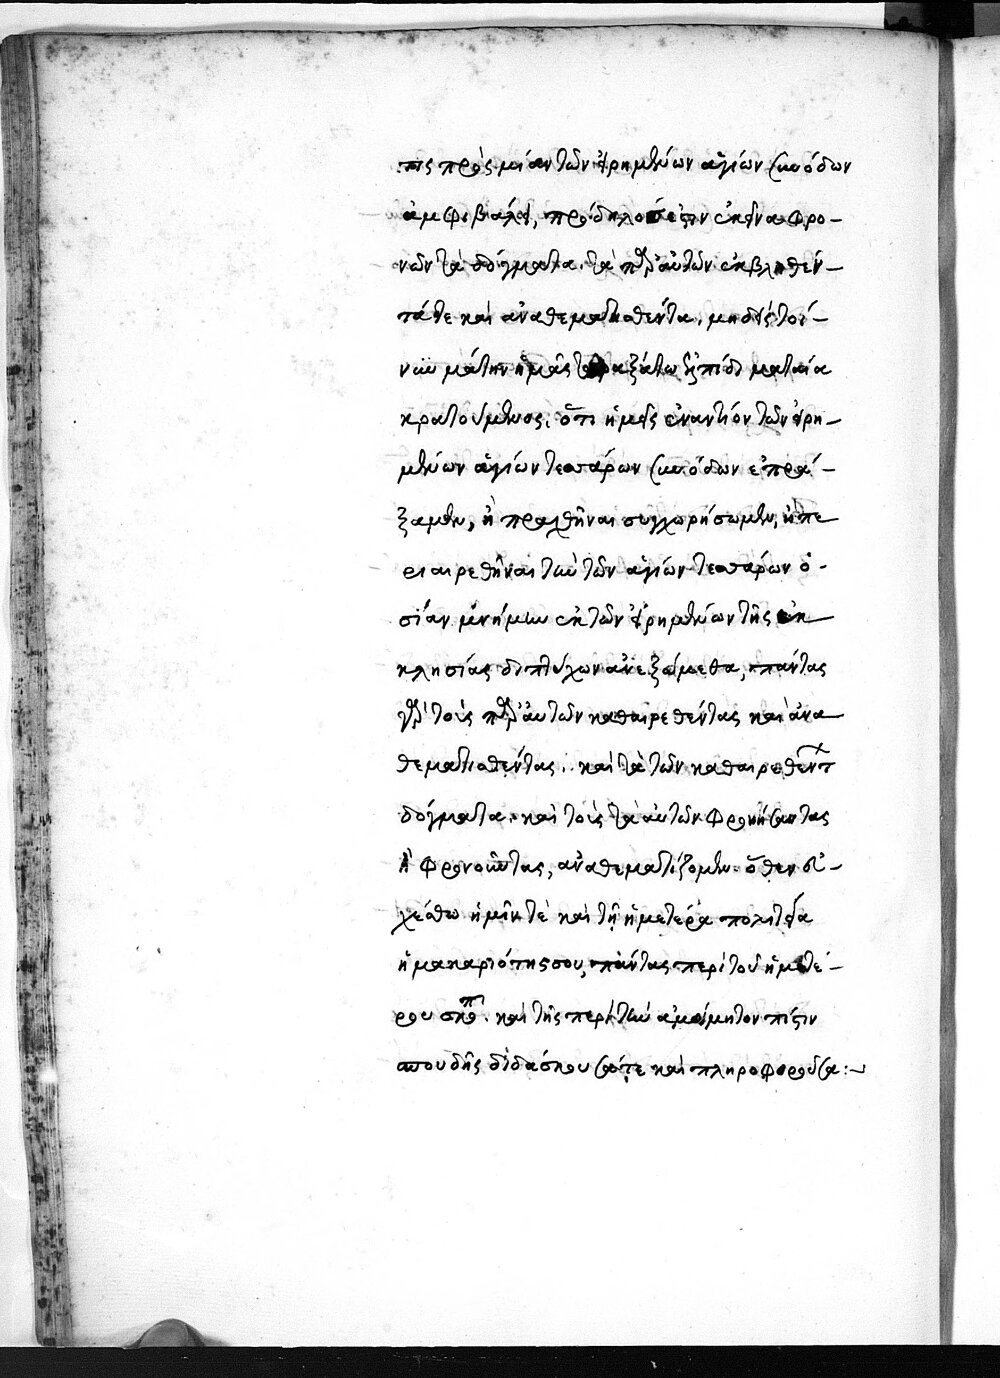 τις πρὸς μίαν τῶν εἰρημένων ἁγίων συνόδων
ἀμφιβάλει, πρόδηλός ἐστιν ἐκεῖνα φρο-
νῶν τὰ δόγματα. τὰ παρ' αὐτῶν ἐκβληθέν-
τά τε καὶ ἀναθεματισθέντα, μηδεὶς τοί-
νυν μάτην ἡμᾶς ταραξάτω ἐλπίδι ματαία
κρατούμενος, ὅτι ἡμεῖς ἐναντίον τῶν εἰρη-
μένων ἁγίων τεσσάρων συνόδων ἐπρά-
ξαμεν, ἢ πραχθῆναι συγχωρήσωμεν, ἢ πε
ριαιρεθῆναι τὴν τῶν ἁγίων τεσσάρων ὁ-
σίαν μνήμην ἐκ τῶν εἰρημένων τῆς ἐκ
κλησίας διπτύχων ἀνεξόμεθα, πάντας
γὰρ τοὺς παρ' αὐτῶν καθαιρεθέντας καὶ ἀνα
θεματισθέντας. καὶ τὰ τῶν καθαιρεθέντ
δόγματα. καὶ τοὺς τὰ αὐτῶν φρονήσαντας
ἢ φρονοῦντας, ἀναθεματίζομεν. ὅθεν εὐ-
χέσθω ἡμῖν τὲ καὶ τῇ ἡμετέρα πολιτεία
ἡ μακαριότης σου, πάντας περὶ τοῦ ἡμετέ-
ρου σκοπ. καὶ τῆς περὶ τὴν ἀμώμητον πίστιν
σπουδῆς διδάσκουσά τε καὶ πληροφοροῦσα:~